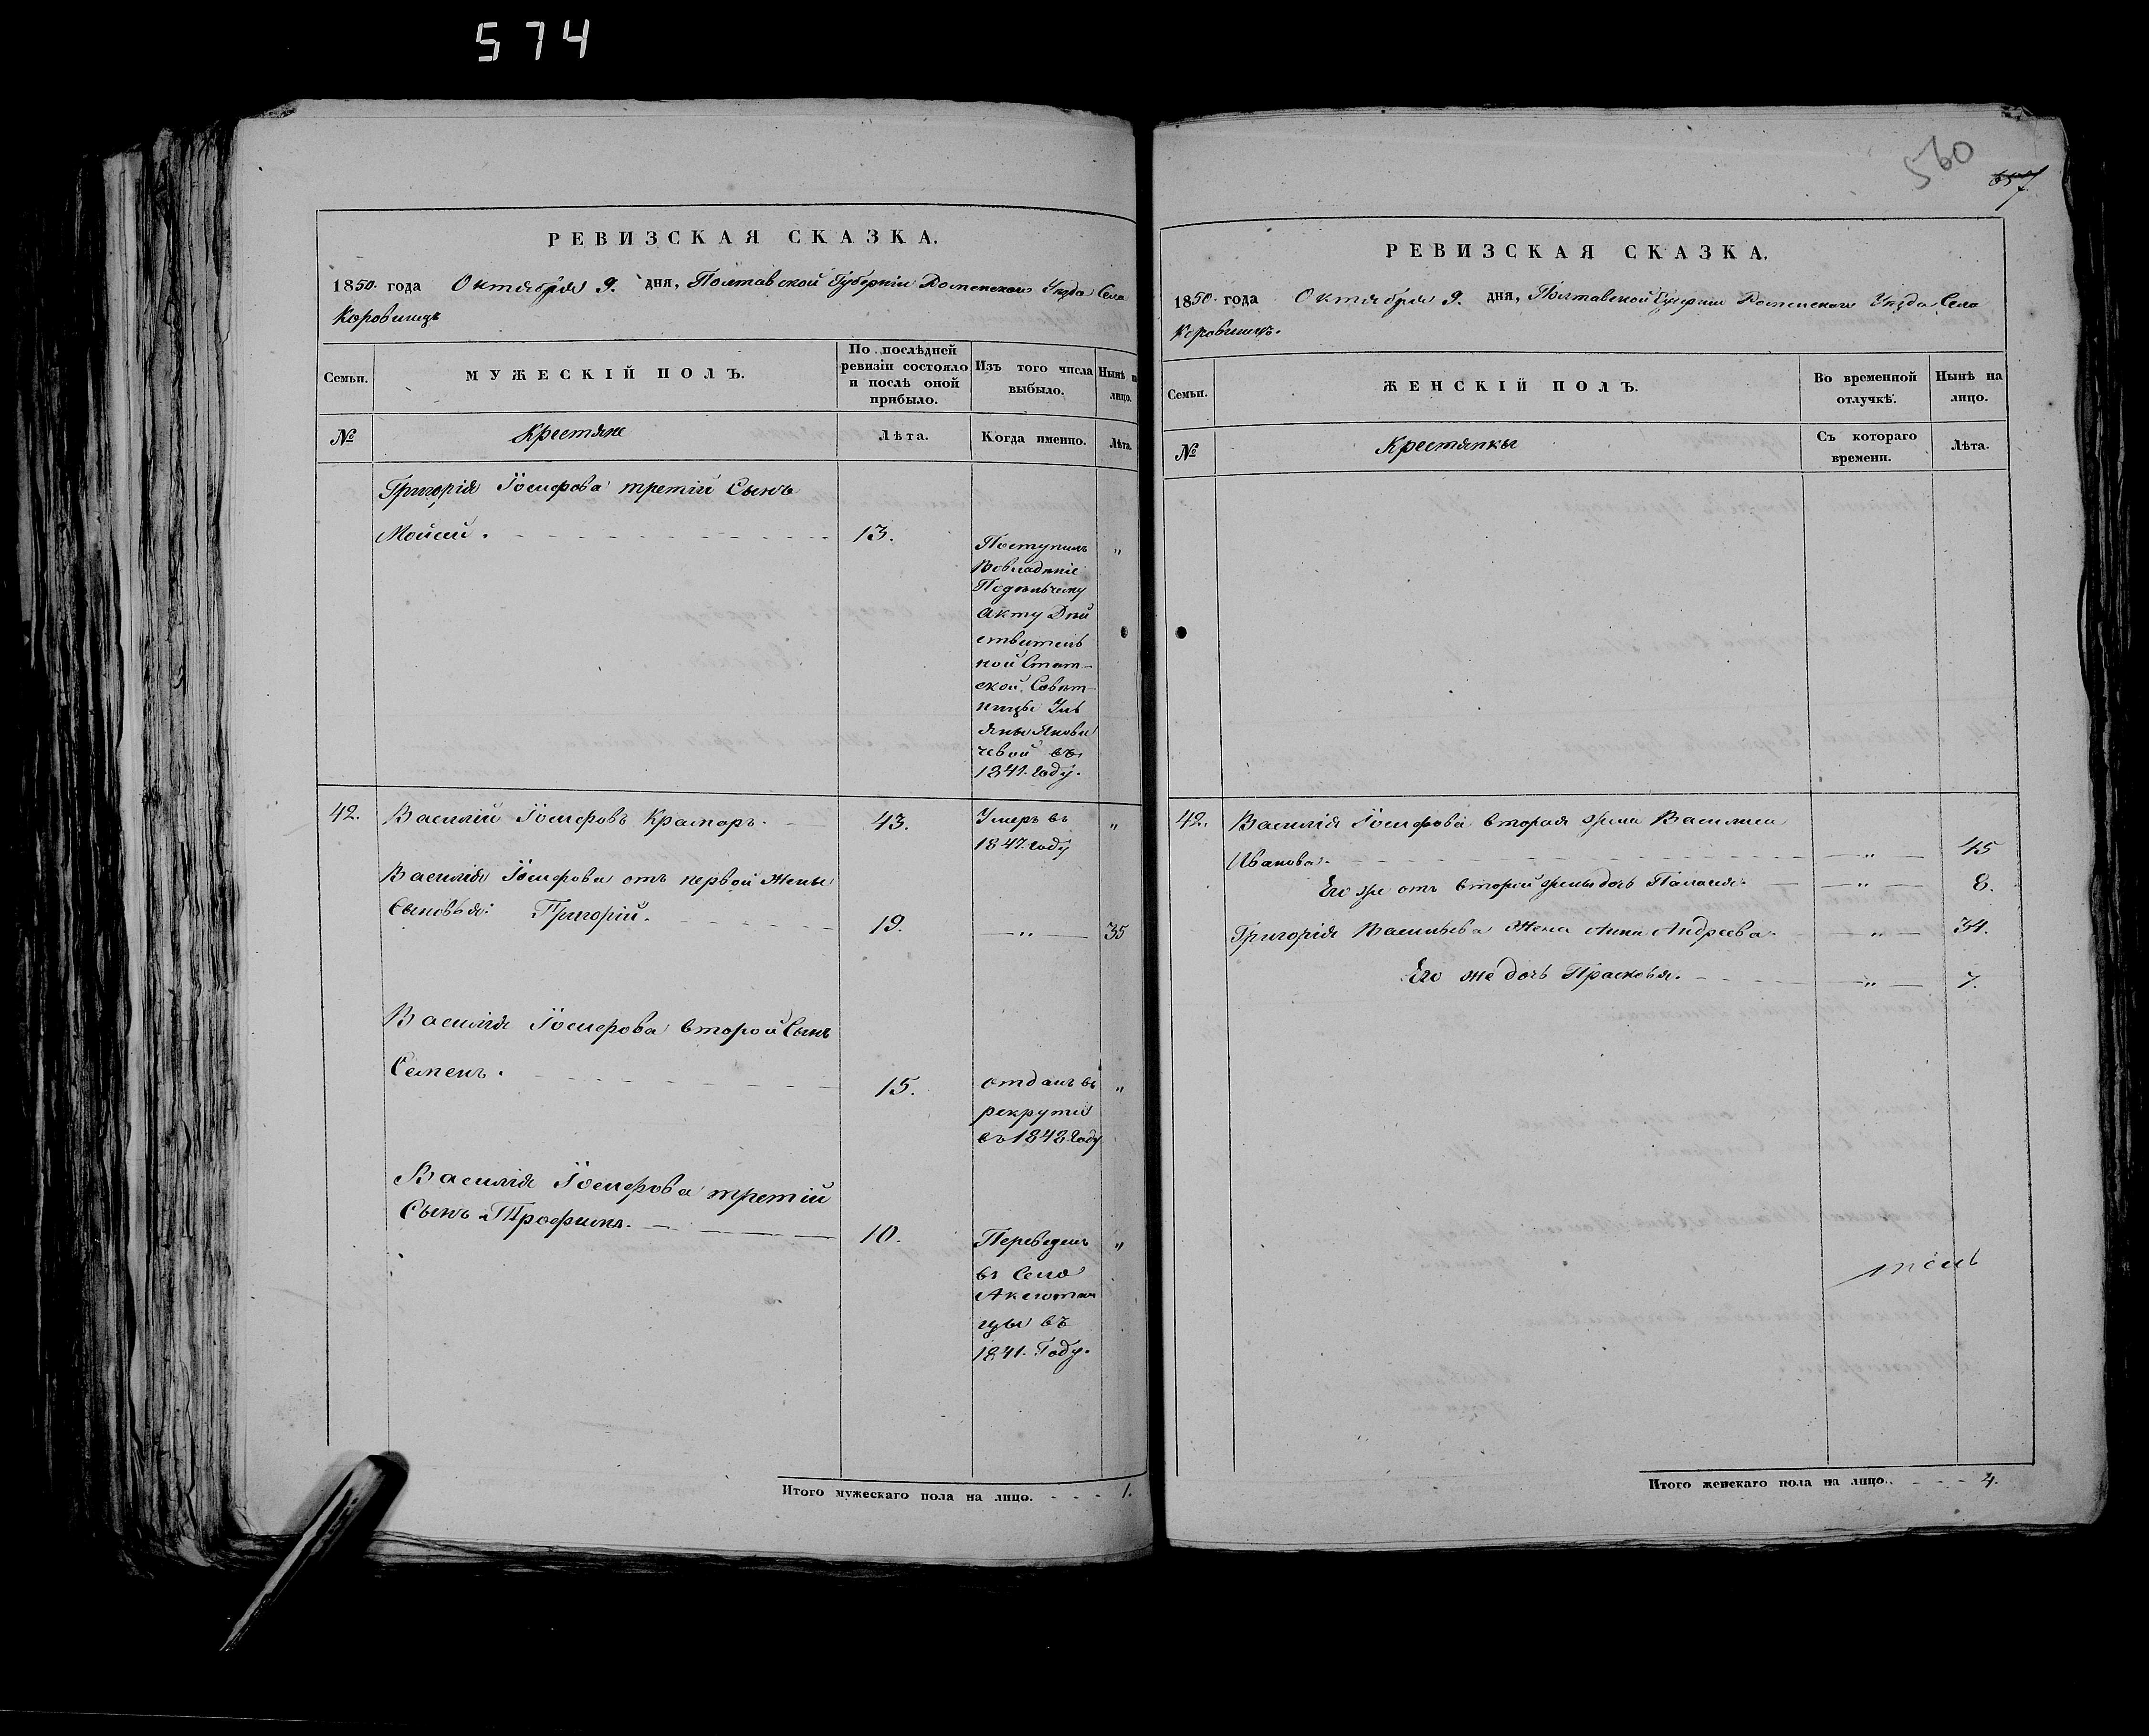 574
РЕВИЗСКАЯ СКАЗКА.
1850. года Октября 9. дня, Полтавской Губернiи Роменского Уѣзда Села
Коровинцъ
Семьи.
МУЖЕСКІЙ ПОЛЪ.
По послѣдней
ревизіи состояло
и послѣ оной
прибыло.
Изъ того числа
выбыло.
Нынѣ на
лицо.
№
Крестяне
Лѣта.
Когда именно.
Лѣта.
Григорія Іосифова третій Сынъ
Мойсей. 13. "
Поступилъ
Вовладѣніе
Подѣльчему
Акту Дѣй
ствитель
ной Стат-
ской Совѣт-
ницы Уль
яны Якови
чевой въ
1841. Году.
42. Василій Іосифовъ Крамаръ. 43. Умеръ въ "
1847. Году
Василія Іосифова отъ первой Жены
Сыновья: Григорій. 19. — " — 35
Василія Іосифова второй Сынъ
Семенъ. 15. отданъ въ "
рекруты
въ 1848. Году
Василія Іосифова третій
Сынъ Трофимъ. 10. Переведенъ "
въ Село
Аксютин
цы въ
1841. Году.
Итого мужескаго пола на лицо. - - - 1.
560
657
РЕВИЗСКАЯ СКАЗКА.
1850. года Октября 9. дня, Полтавской Губерніи Роменского Уѣзда Села
Коровинцъ.
Семьи.
ЖЕНСКІЙ ПОЛЪ.
Во временной
отлучкѣ.
Нынѣ на
лицо.
№
Крестянки
Съ котораго
времени.
Лѣта.
42. Василія Іосифова вторая жена Василиса
Иванова. — " — 45
Его же отъ второй жены дочь Палагея. — " — 8.
Григорія Васильева Жена Анна Андреева. — " — 34.
Его же дочь Прасковья. — " — 7.
тель
Итого женскаго пола на лицо. - - - 4.